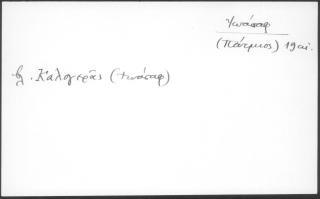 Ἰωάσαφ
(Πάτμιος) 19 αἰ.
βλ. Καλογερᾶς (Ἰωάσαφ)